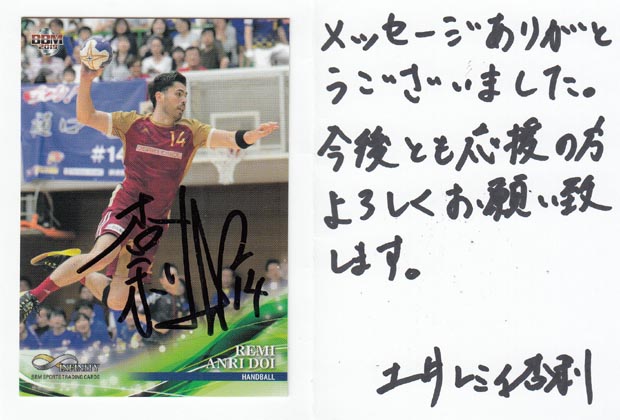 BBM
2015
#14
14
14
INFINITY
BBM SPORTS TRADING CARDS
REMI
ANRI DOI
HANDBALL
メッセージありがと
うございました。
今後とも応援の方
よろしくお願い致
します。
土井レミイ杏利